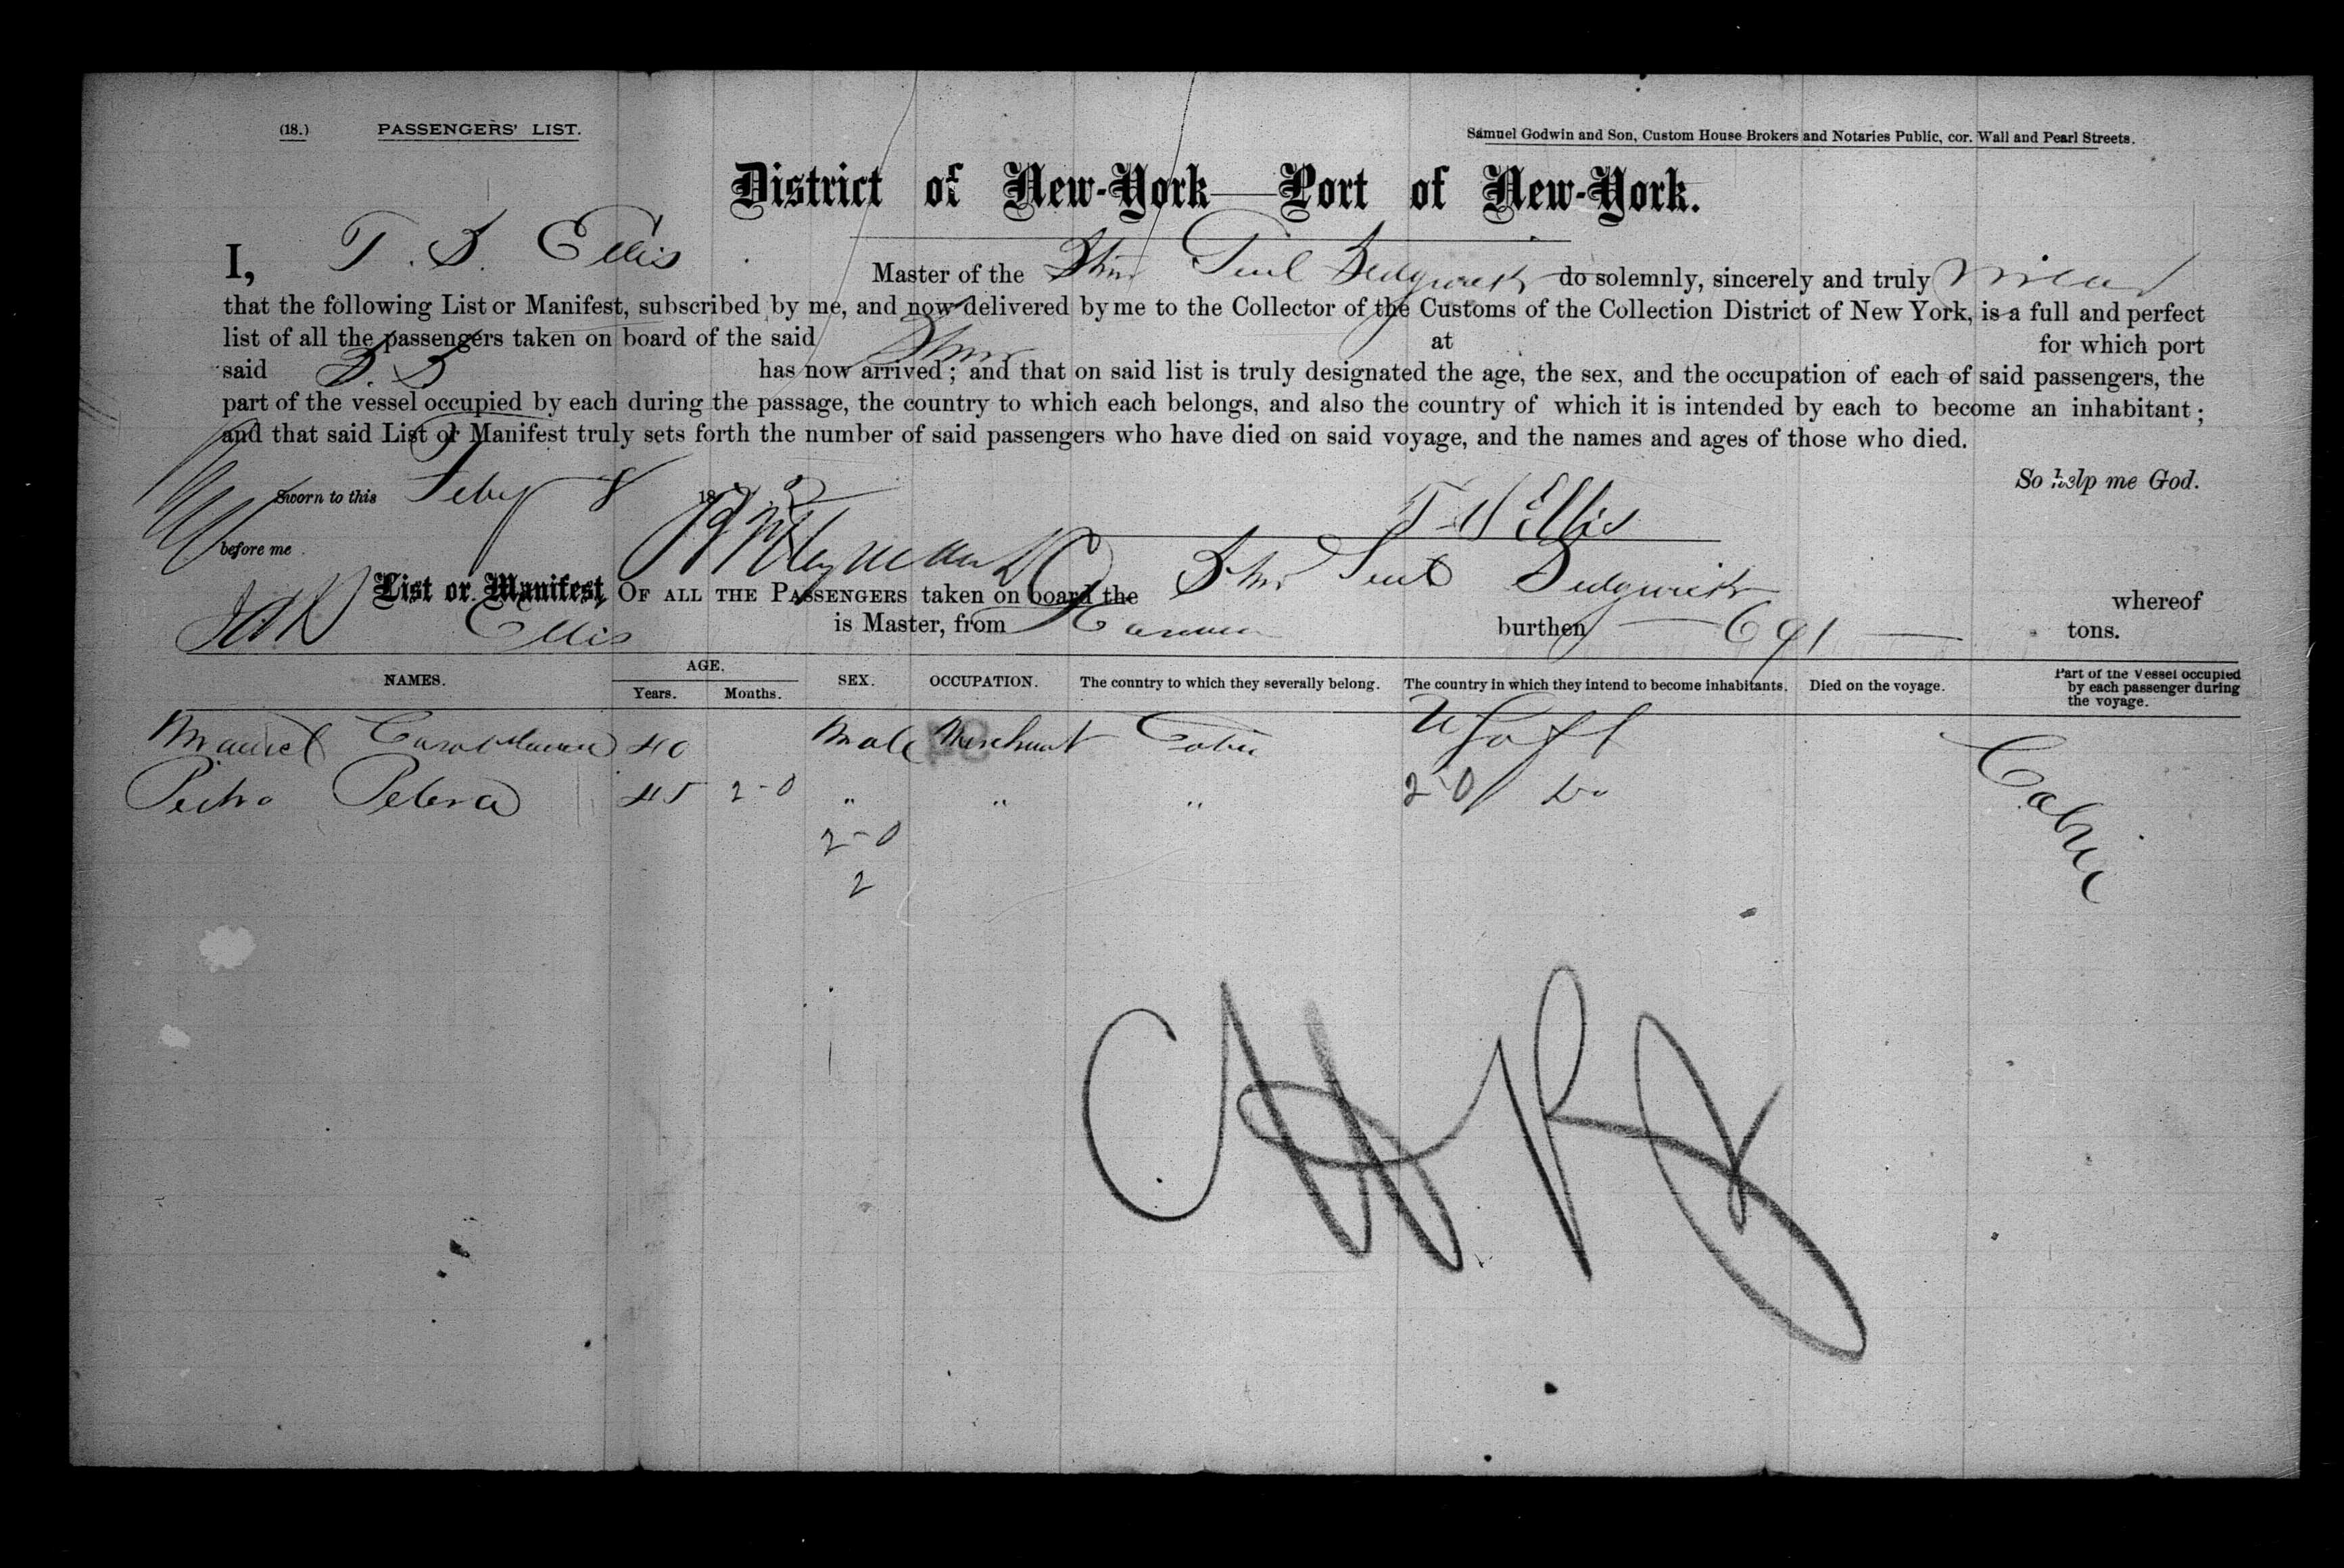 (18.) PASSENGERS' LIST.
Samuel Godwin and Son, Custom House Brokers and Notaries Public, cor. Wall and Pearl Streets.
District of New-York—Port of New-York.
I, T. S. Ellis Master of the Sedgwick do solemnly, sincerely and truly
that the following List or Manifest, subscribed by me, and now delivered by me to the Collector of the Customs of the Collection District of New York, is a full and perfect
list of all the passengers taken on board of the said at for which port
said has now arrived; and that on said list is truly designated the age, the sex, and the occupation of each of said passengers, the
part of the vessel occupied by each during the passage, the country to which each belongs, and also the country of which it is intended by each to become an inhabitant;
and that said List or Manifest truly sets forth the number of said passengers who have died on said voyage, and the names and ages of those who died.
So help me God.
Sworn to this Feby 8 18
Ellis
before me
List or Manifest, OF ALL THE PASSENGERS taken on board the Sedgwick whereof
Ellis is Master, from burthen 691 tons.
NAMES. AGE. SEX. OCCUPATION. The country to which they severally belong. The country in which they intend to become inhabitants. Died on the voyage. Part of the Vessel occupied by each passenger during the voyage.
Years. Months.
Manuel 40 Male Merchant Cuba Cabin
Pedro 45 2-0 " " " 2-0 Do
2-0
2